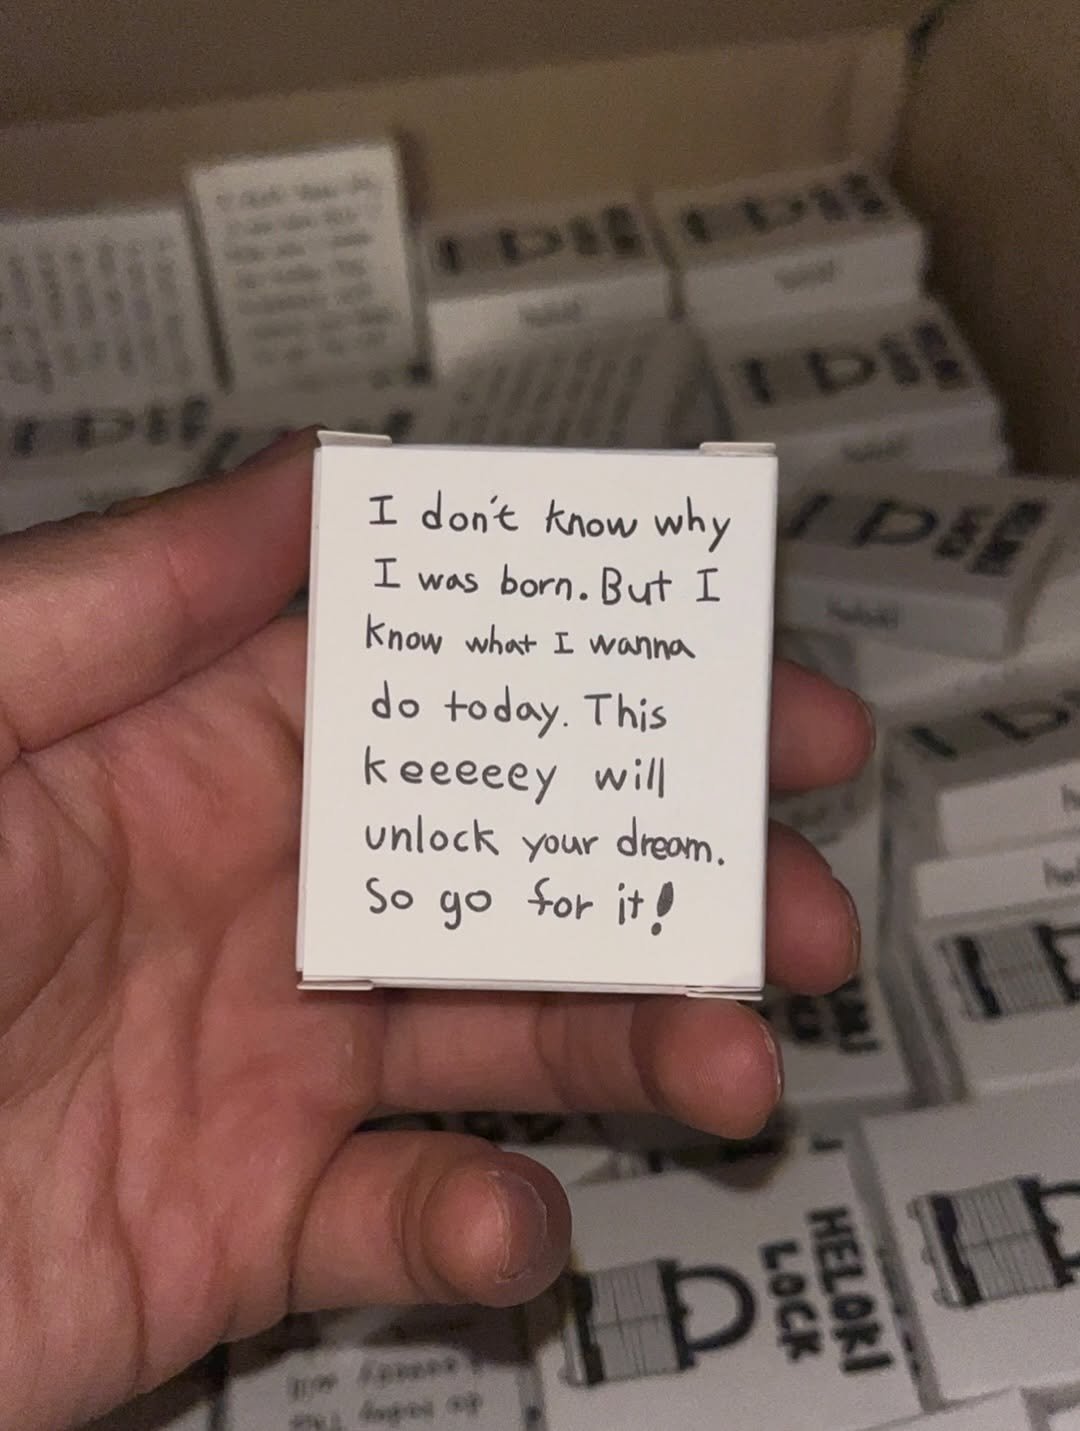 I don't know why
I was born. But I
know what I wanna
do today. This
keeeeey will
unlock your dream.
So go for it!
HELOKI
LOCK